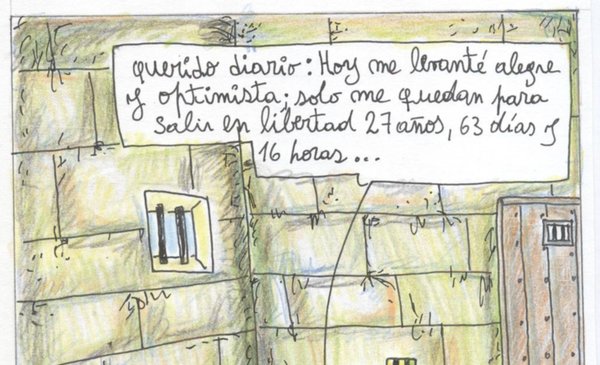 querido diario: Hoy me levanté alegre
y optimista; solo me quedan para
salir en libertad 27 años, 63 días y
16 horas...